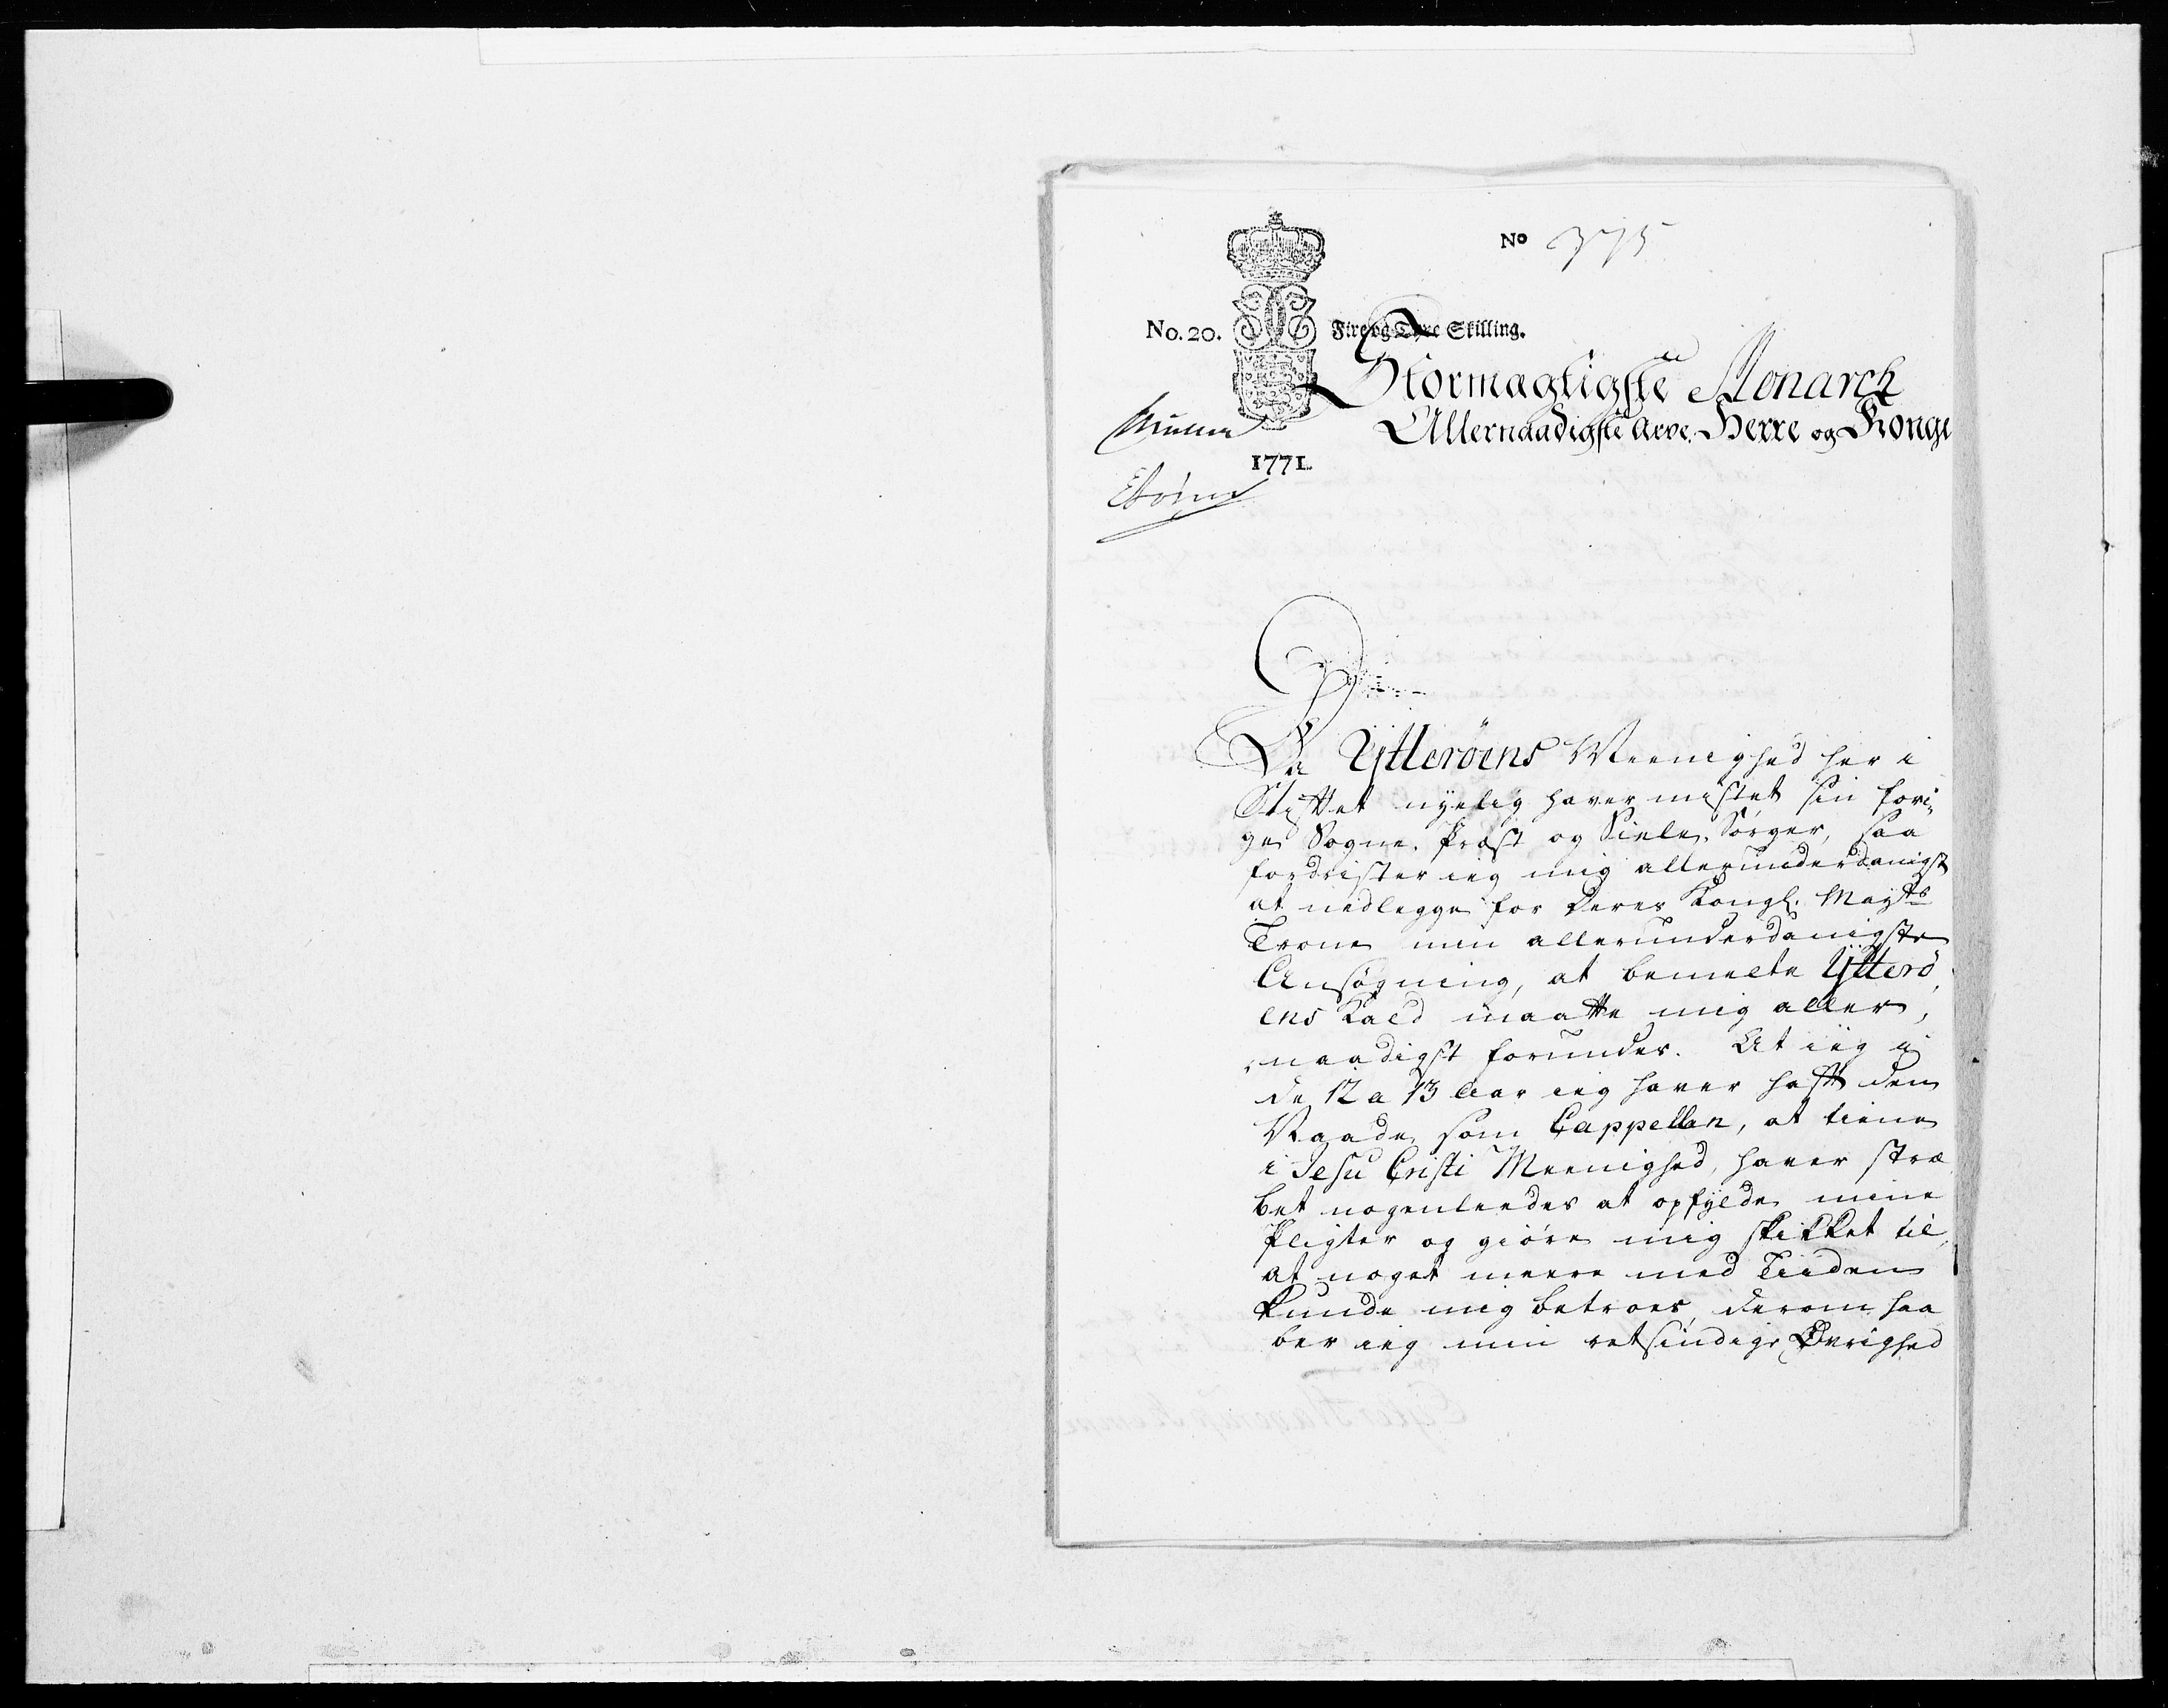 No 375
No. 20. Fire og Tyve Skilling.
Stormægtigste Monarch
Allernaadigste Arve-Herre og Konge
1771.
Da Ytterøens Meenighed her i
Stiftet nyelig haver mistet sin fori-
ge Sogne-Præst og Siele-Sørger, saa
fordrister ieg mig allerunderdanigst
at nedlegge for Deres Kongl. Mayts
Trone min allerunderdanigste
Ansøgning, at bemelte Ytterø,
ens Kald maatte mig aller,
naadigst forundes. At ieg i
de 12 a 13 Aar ieg haver haft den
Naade som Cappellan, at tiene
i Jesu Cristi Meenighed, haver stræ
bet nogenleedes at opfylde mine
Pligter og giøre mig skikket til,
at noget meere med Tiiden
kunde mig betroes, derom haa
ber ieg min retsindige Øvrighed